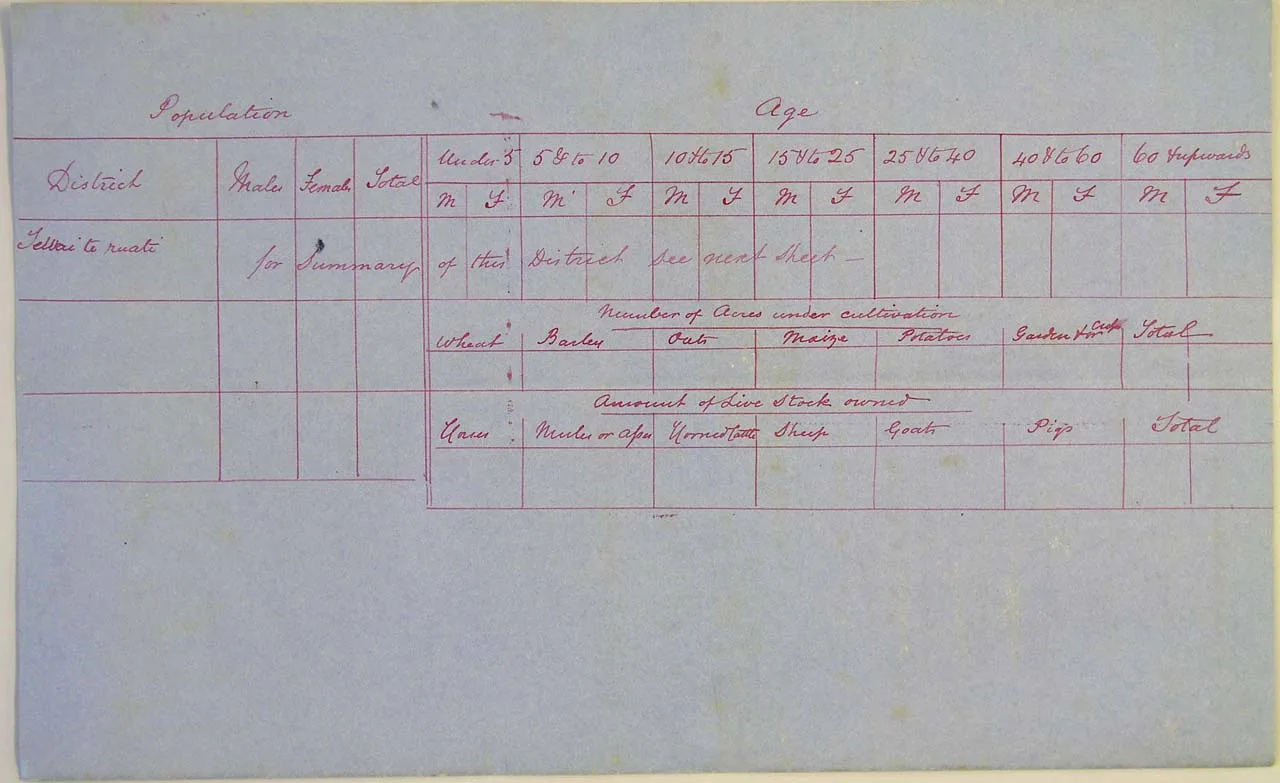 Population Age
District Males Females Total Under 5 5 & to 10 10 & to 15 15 & to 25 25 & to 40 40 & to 60 60 & upwards
M F M F M F M F M F M F M F
to ruati for Summary of this District see next sheet —
Number of Acres under cultivation
Wheat Barley Oats Maize Potatoes Garden & or Crops Total
Amount of Live Stock owned
Horses Mules or asses Horned Cattle Sheep Goats Pigs Total